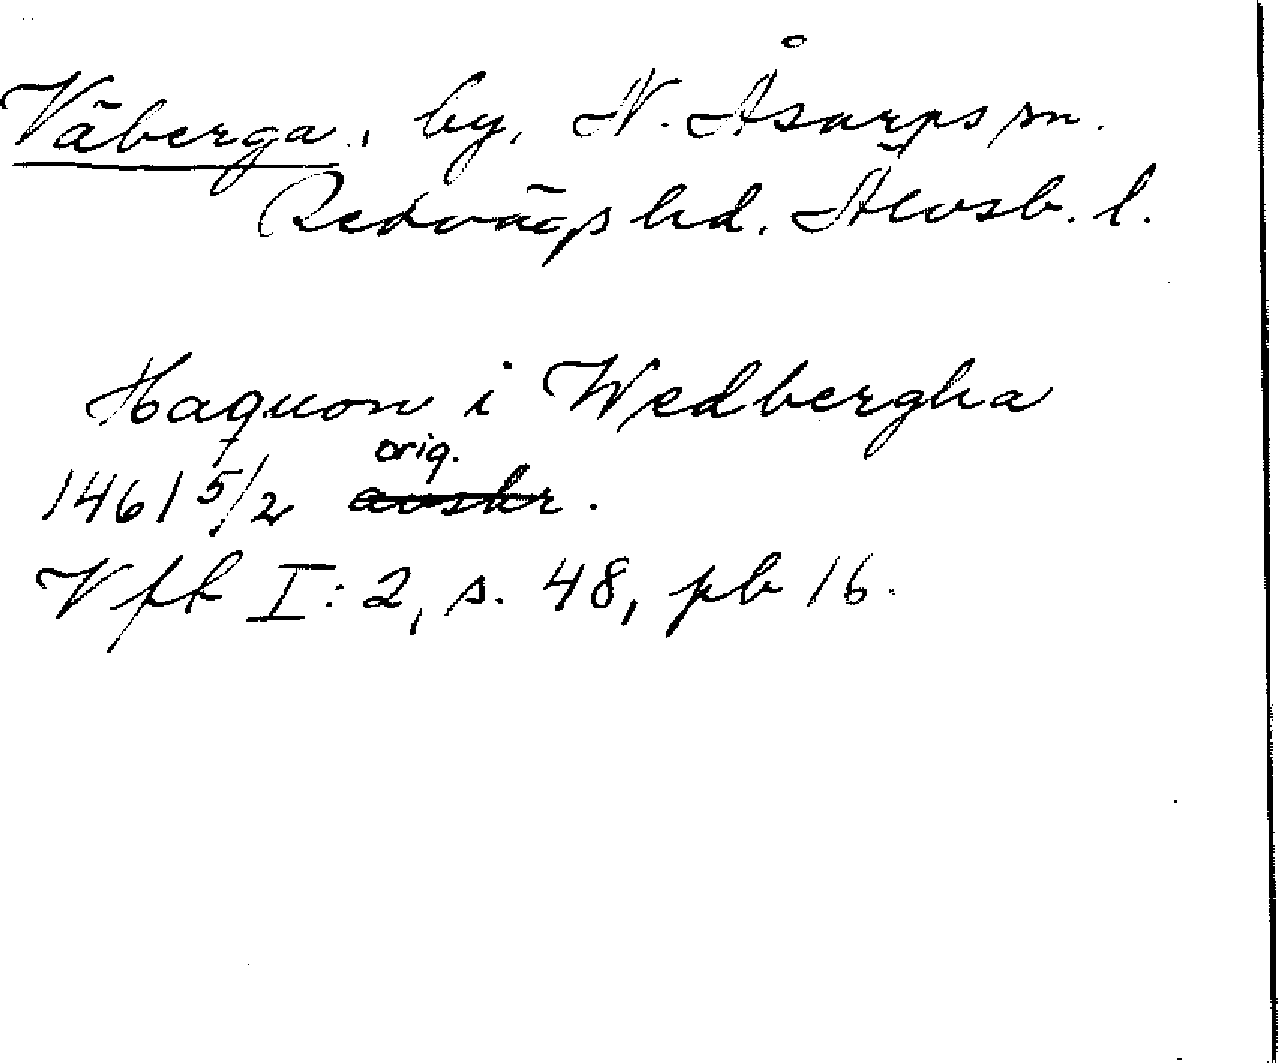 Väberga, by, N. Åsarps sn.
Redvägs hd. Älvsb. l.
Haquon i Wedbergha
orig.
1461 5/2 avskr.
Vfk I:2, s. 48, pb 16.